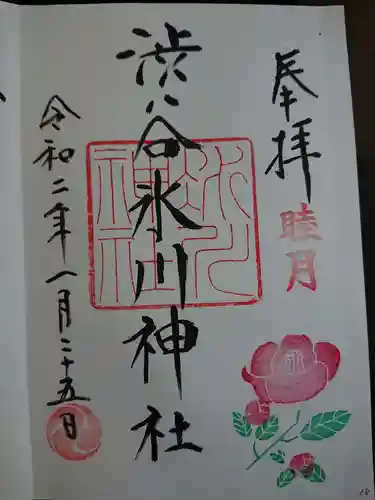 奉拝
睦月
渋谷氷川神社
令和二年一月二十五日
18